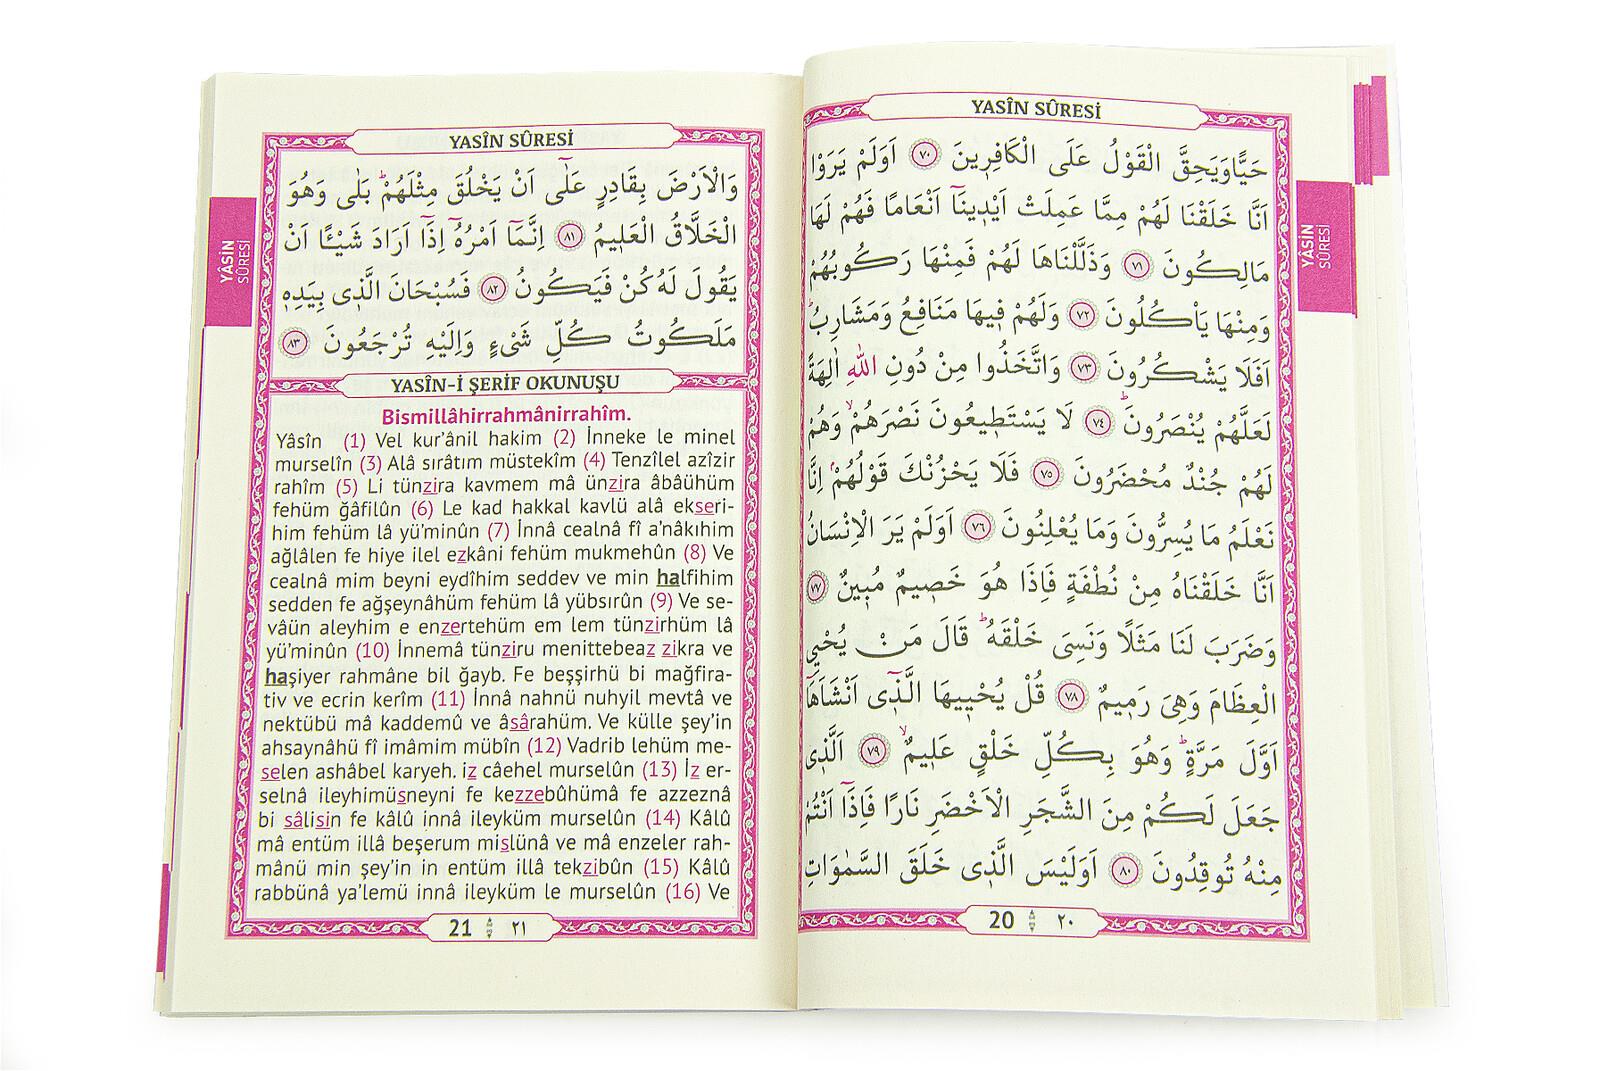 YASÎN SÛRESİ
حَيًّا وَيَحِقَّ الْقَوْلُ عَلَى الْكَافِرِينَ ﴿٧٠﴾ اَوَلَمْ يَرَوْا
اَنَّا خَلَقْنَا لَهُمْ مِمَّا عَمِلَتْ اَيْدِينَٓا اَنْعَامًا فَهُمْ لَهَا
مَالِكُونَ ﴿٧١﴾ وَذَلَّلْنَاهَا لَهُمْ فَمِنْهَا رَكُوبُهُمْ
وَمِنْهَا يَأْكُلُونَ ﴿٧٢﴾ وَلَهُمْ فِيهَا مَنَافِعُ وَمَشَارِبُۜ
اَفَلَا يَشْكُرُونَ ﴿٧٣﴾ وَاتَّخَذُوا مِنْ دُونِ اللّٰهِ اٰلِهَةً
لَعَلَّهُمْ يُنْصَرُونَۜ ﴿٧٤﴾ لَا يَسْتَطِيعُونَ نَصْرَهُمْۙ وَهُمْ
لَهُمْ جُنْدٌ مُحْضَرُونَ ﴿٧٥﴾ فَلَا يَحْزُنْكَ قَوْلُهُمْۢ اِنَّا
نَعْلَمُ مَا يُسِرُّونَ وَمَا يُعْلِنُونَ ﴿٧٦﴾ اَوَلَمْ يَرَ الْاِنْسَانُ
اَنَّا خَلَقْنَاهُ مِنْ نُطْفَةٍ فَاِذَا هُوَ خَصِيمٌ مُبِينٌ ﴿٧٧﴾
وَضَرَبَ لَنَا مَثَلًا وَنَسِيَ خَلْقَهُۜ قَالَ مَنْ يُحْيِي
الْعِظَامَ وَهِيَ رَمِيمٌ ﴿٧٨﴾ قُلْ يُحْيِيهَا الَّذِٓي اَنْشَاَهَٓا
اَوَّلَ مَرَّةٍۜ وَهُوَ بِكُلِّ خَلْقٍ عَلِيمٌۙ ﴿٧٩﴾ اَلَّذِي
جَعَلَ لَكُمْ مِنَ الشَّجَرِ الْاَخْضَرِ نَارًا فَاِذَٓا اَنْتُمْ
مِنْهُ تُوقِدُونَ ﴿٨٠﴾ اَوَلَيْسَ الَّذِي خَلَقَ السَّمٰوَاتِ
20 ٢٠
YÂSİN
SÛRESİ
YASÎN SÛRESİ
وَالْاَرْضَ بِقَادِرٍ عَلٰٓى اَنْ يَخْلُقَ مِثْلَهُمْۜ بَلٰى وَهُوَ
الْخَلَّاقُ الْعَلِيمُ ﴿٨١﴾ اِنَّمَٓا اَمْرُهُٓ اِذَٓا اَرَادَ شَيْـًٔا اَنْ
يَقُولَ لَهُ كُنْ فَيَكُونُ ﴿٨٢﴾ فَسُبْحَانَ الَّذِي بِيَدِهِ
مَلَكُوتُ كُلِّ شَيْءٍ وَاِلَيْهِ تُرْجَعُونَ ﴿٨٣﴾
YASÎN-İ ŞERİF OKUNUŞU
Bismillâhirrahmânirrahîm.
Yâsîn (1) Vel kur'ânil hakim (2) İnneke le minel
murselîn (3) Alâ sırâtım müstekîm (4) Tenzîlel azîzir
rahîm (5) Li tünzira kavmem mâ ünzira âbâühüm
fehüm ğâfilûn (6) Le kad hakkal kavlü alâ ekseri-
him fehüm lâ yü'minûn (7) İnnâ cealnâ fî a'nâkıhim
ağlâlen fe hiye ilel ezkâni fehüm mukmehûn (8) Ve
cealnâ mim beyni eydîhim seddev ve min halfihim
sedden fe ağşeynâhüm fehüm lâ yübsırûn (9) Ve se-
vâün aleyhim e enzertehüm em lem tünzirhüm lâ
yü'minûn (10) İnnemâ tünziru menittebeaz zikra ve
haşiyer rahmâne bil ğayb. Fe beşşirhü bi mağfira-
tiv ve ecrin kerîm (11) İnnâ nahnü nuhyil mevtâ ve
nektübü mâ kaddemû ve âsârahüm. Ve külle şey'in
ahsaynâhü fî imâmim mübîn (12) Vadrib lehüm me-
selen ashâbel karyeh. iz câehel murselûn (13) İz er-
selnâ ileyhimüsneyni fe kezzebûhümâ fe azzeznâ
bi sâlisin fe kâlû innâ ileyküm murselûn (14) Kâlû
mâ entüm illâ beşerum mislünâ ve mâ enzeler rah-
mânü min şey'in in entüm illâ tekzibûn (15) Kâlû
rabbünâ ya'lemü innâ ileyküm le murselûn (16) Ve
21 ٢١
YÂSİN
SÛRESİ